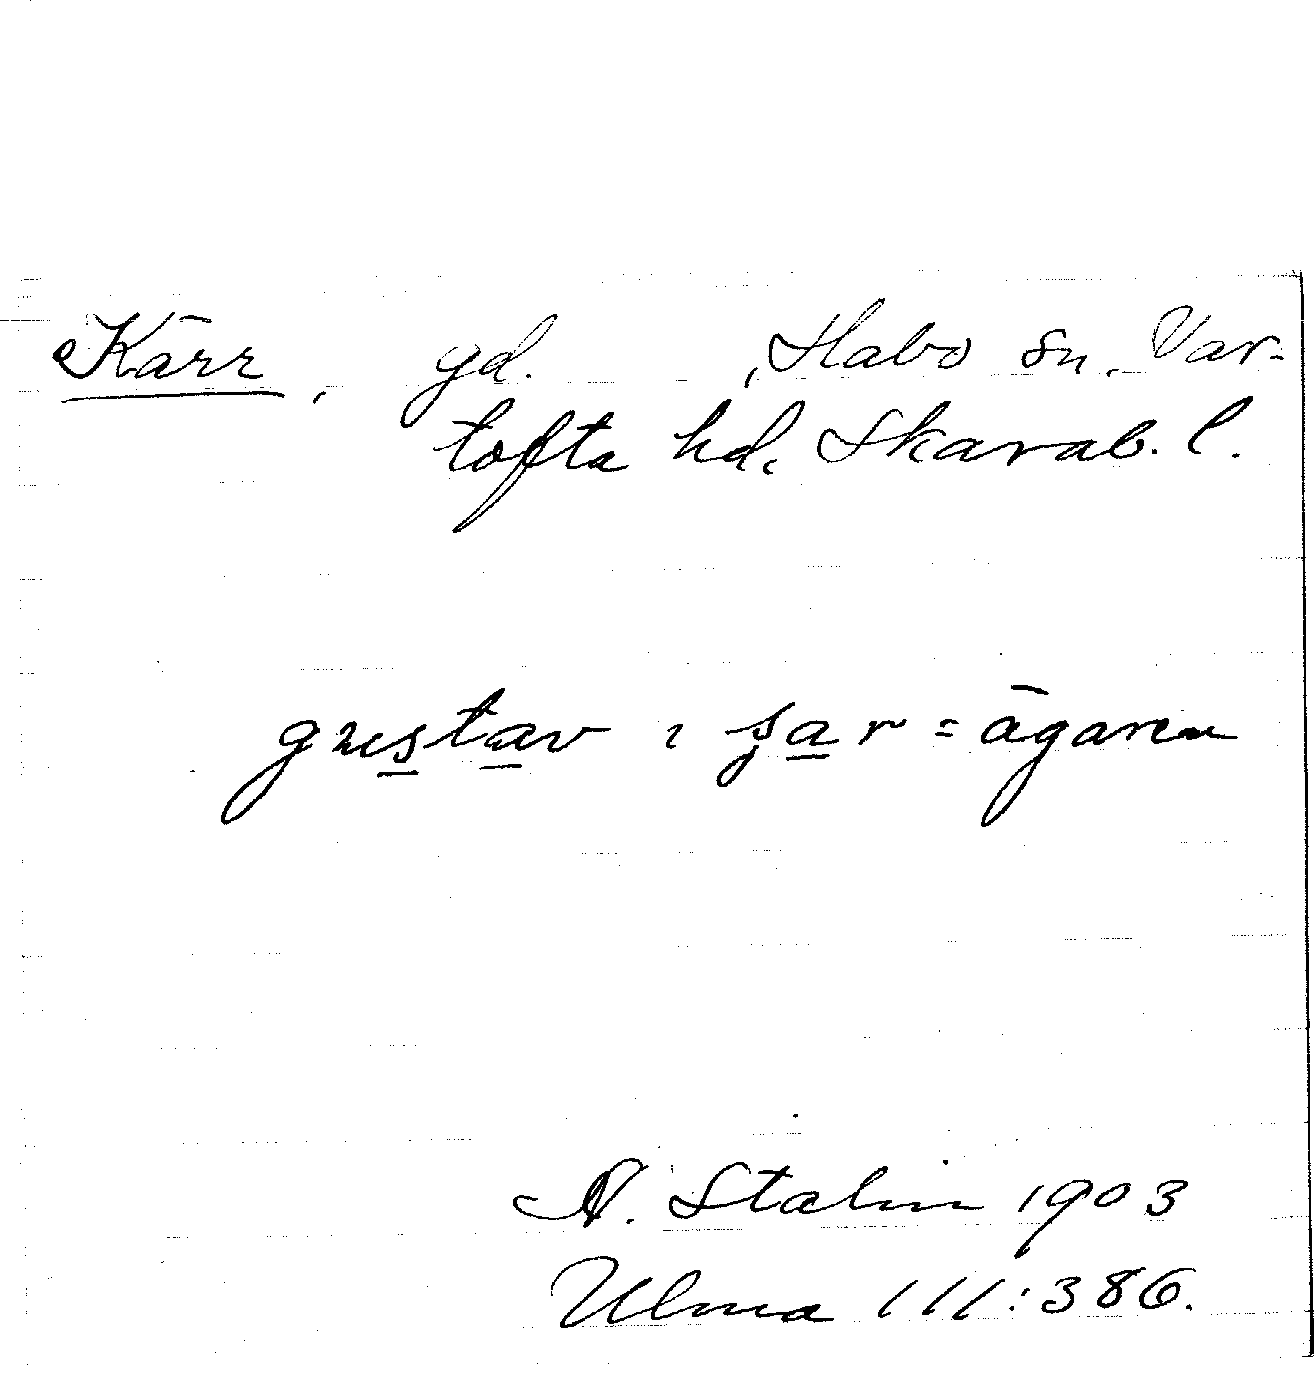 Kärr, gd. , Habo sn. Var-
tofta hd. Skarab. l.
gustav i ʂar = ägaren
A. Stalin 1903
Ulma 111:386.